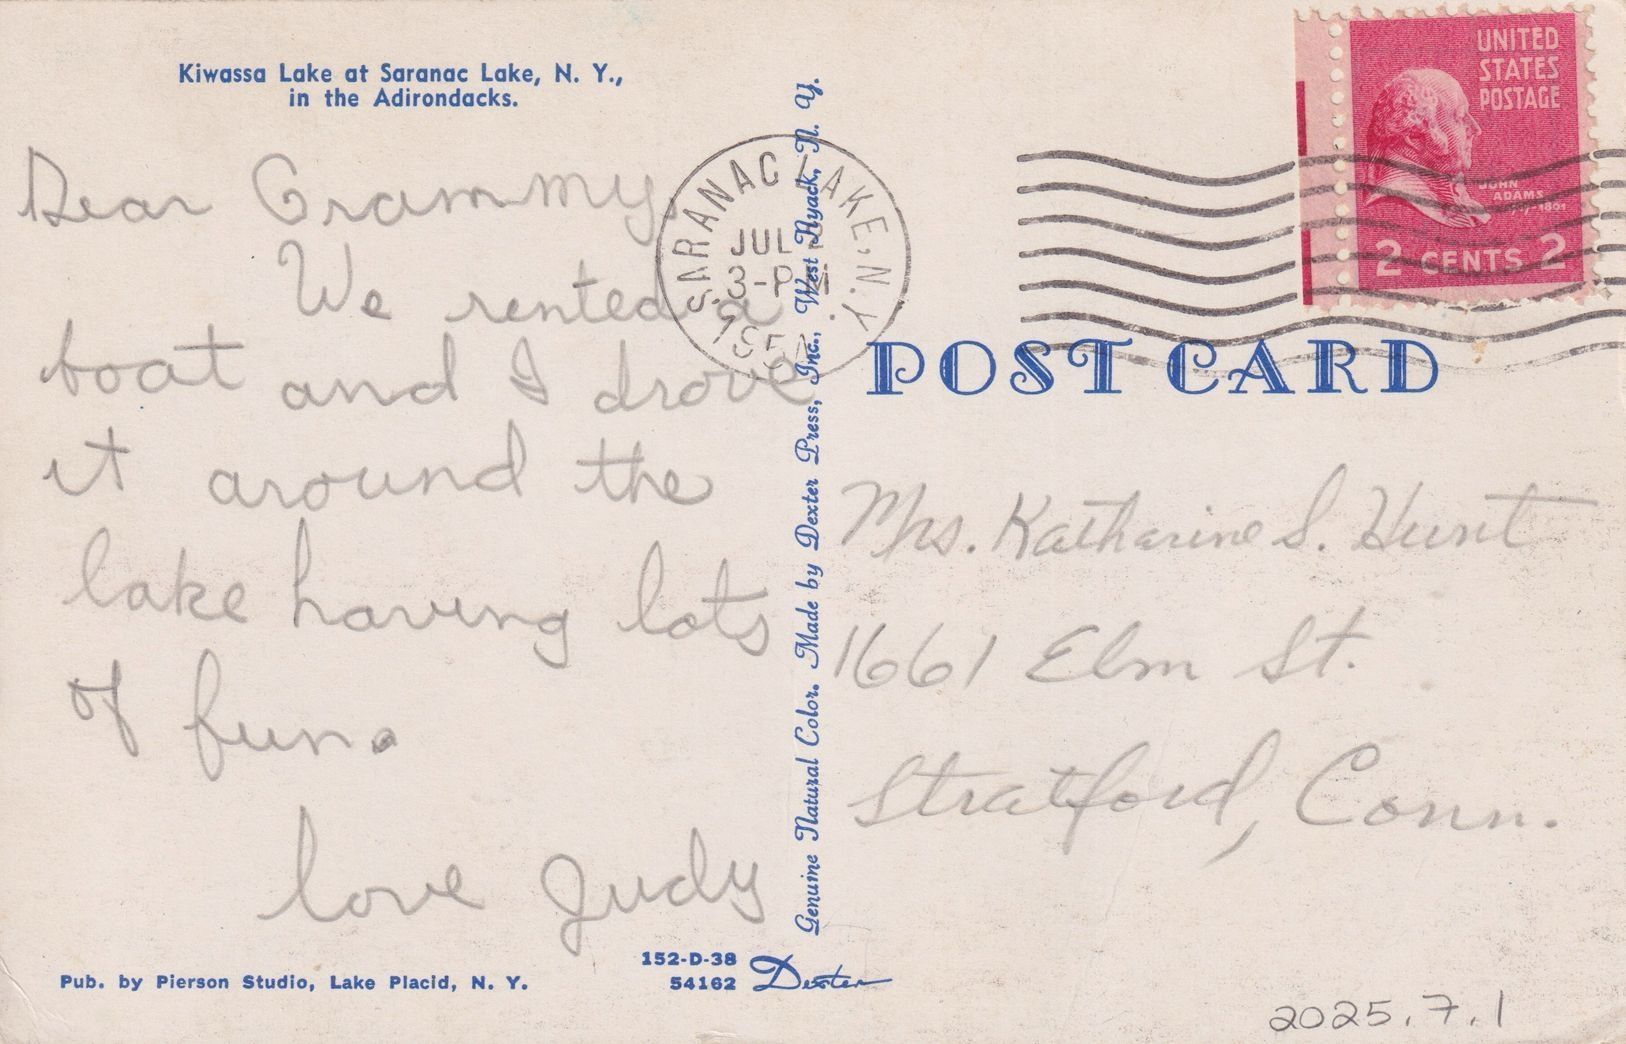 Kiwassa Lake at Saranac Lake, N. Y.,
in the Adirondacks.
Dear Grammy,
We rented a
boat and I drove
it around the
lake having lots
of fun.
love Judy
Pub. by Pierson Studio, Lake Placid, N. Y.
152-D-38
54162
Dexter
Genuine Natural Color. Made by Dexter Press, Inc., West Nyack, N. Y.
SARANAC LAKE, N.Y.
JUL
3-PM
UNITED
STATES
POSTAGE
JOHN
ADAMS
2 CENTS 2
POST CARD
Mrs. Katharine S. Hunt
1661 Elm St.
Stratford, Conn.
2025.7.1